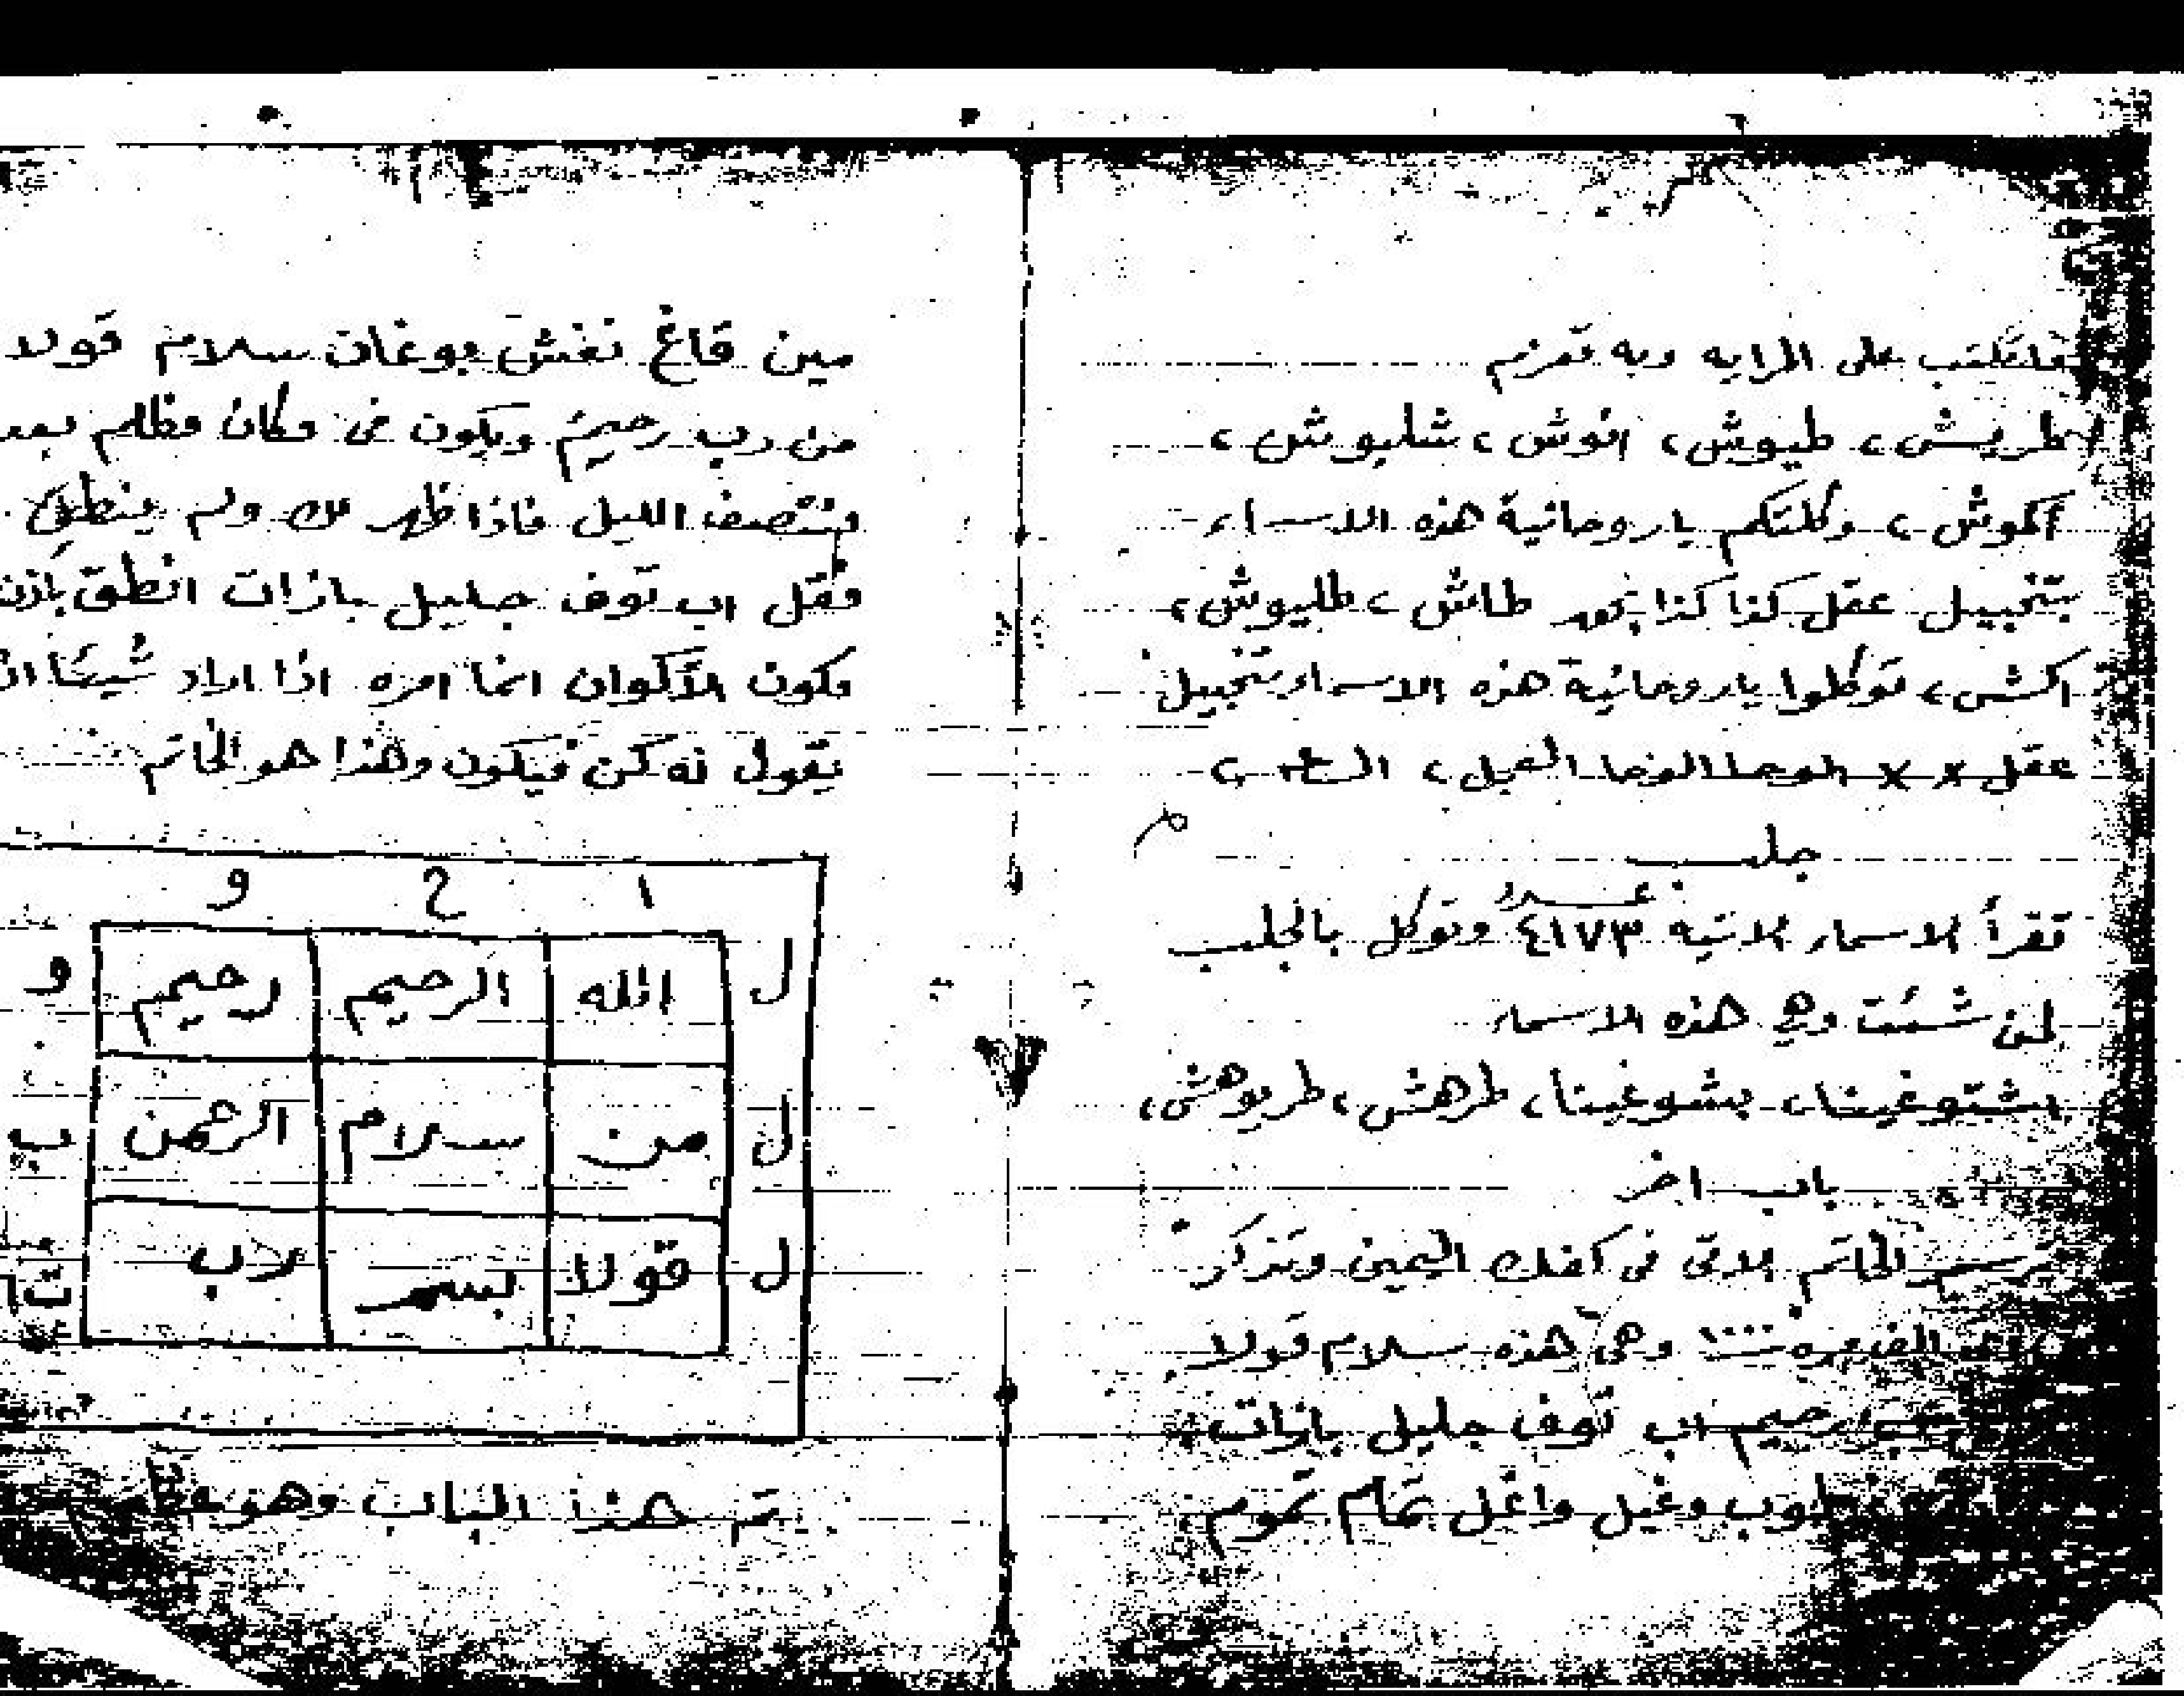 فلتكتب على المرايه وبه تعزيم
طريش، طيوش، انوش، شليوش،
اكوش، وكلتكم ياروحانية هذه الاسماء
بتخبيل عقل كذا كذا بحق طاش، طليوش،
اكش، توكلوا ياروحانية هذه الاسماء بتخبيل
عقل x x الوحا الوحا العجل، الساعه،
جلب
تقرأ الاسماء الاتيه عدد ٤١٧٣ وتوكل بالجلب
لمن شئت وهي هذه الاسماء
اشتوغينا، بشوغينا، طرهش، طريوهش،
باب اخر
ترسم الخاتم الاتى فى كفك اليمين وتذكر
الف مره ١٠٠٠ وهى هذه سلام قولا
رحيم اب توف جليل بازات
طوب وغيل واغل تمام تموم
مين قاغ نغش بوغات سلام قولا
من رب رحيم ويكون فى مكان مظلم بعد
منتصف الليل فاذا ظهر لك ولم ينطق
فقل اب توف جليل بازات انطق باذن
مكون الأكوان انما امره اذا اراد شيئا ان
يقول له كن فيكون وهذا هو الخاتم
ا ح و
ل الله الرحيم رحيم و
ل من سلام الرحمن ب
ل قولا بسم لاب
تم هذا الباب وهو